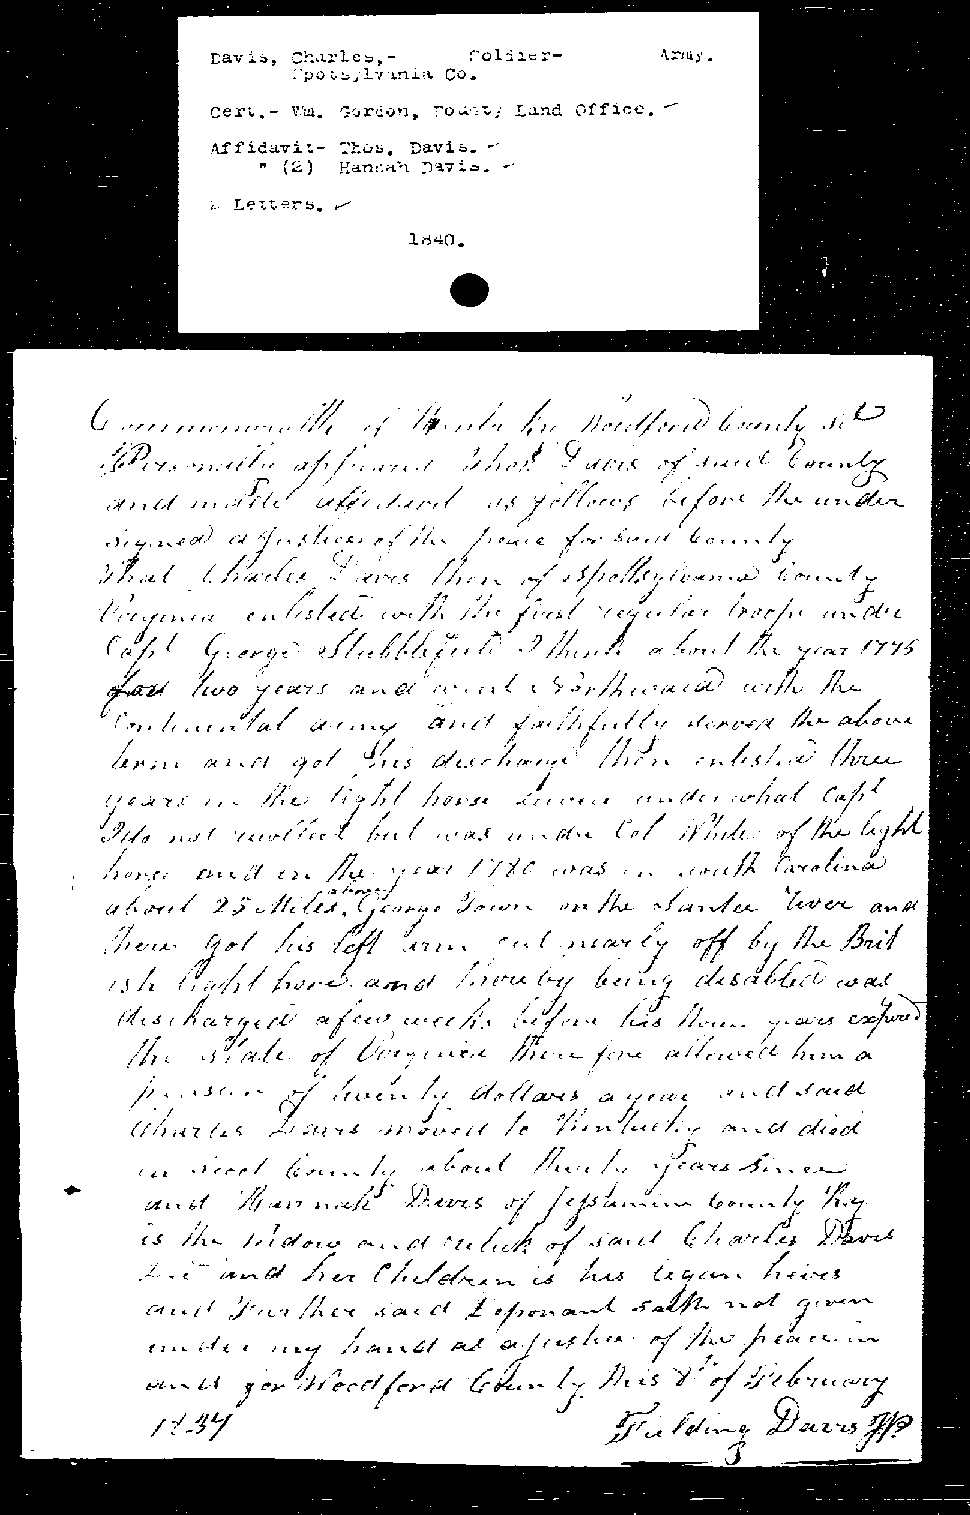 Davis, Charles,- Soldier- Army.
Spotsylvania Co.
Cert.- Wm. Gordon, Bounty Land Office. ✓
Affidavit- Thos. Davis. ✓
" (2) Hannah Davis. ✓
2 Letters. ✓
1840.
Commonwealth of Kentucky Woodford County Sct
Personally appeared Thos Davis of said County
and made affidavit as follows before the under
signed a Justice of the peace for said County
that Charles Davis then of Spottsylvania County
Virginia enlisted with the first regular troops under
Capt George Stubblefield I think about the year 1775
for two years and went Northward with the
Continental army and faithfully served the above
term and got his discharge then enlisted three
years in the light horse service under what Capt
I do not recollect but was under Col White of the light
horse and in the year 1780 was in south Carolina
about 25 Miles above George Town on the Santee River and
there got his left arm cut nearly off by the Brit
ish light horse and thereby being disabled was
discharged a few weeks before his three years expired
the state of Virginia therefore allowed him a
pension of twenty dollars a year and said
Charles Davis moved to Kentucky and died
in Scott County about thirty years since
and Hannah Davis of Jessamine County Ky
is the widow and relick of said Charles Davis
and her Children is his legan heires
and Further said Deponant saith not given
under my hand as a justice of the peace in
and for Woodford County this 8th of February
1837
Fielding Davis JP